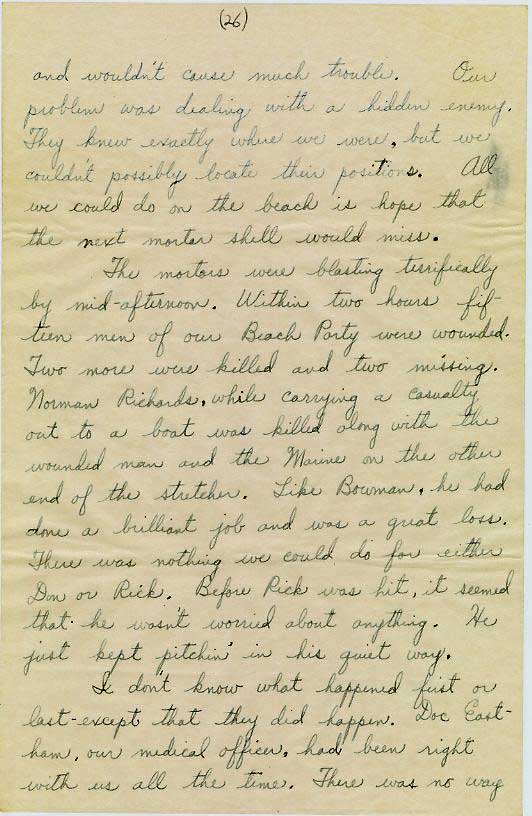 (26)
and wouldn't cause much trouble. Our
problem was dealing with a hidden enemy.
They knew exactly where we were, but we
couldn't possibly locate their positions. All
we could do on the beach is hope that
the next mortar shell would miss.
The mortars were blasting terrifically
by mid-afternoon. Within two hours fif-
teen men of our Beach Party were wounded.
Two more were killed and two missing.
Norman Richards, while carrying a casualty
out to a boat was killed along with the
wounded man and the Marine on the other
end of the stretcher. Like Bowman, he had
done a brilliant job and was a great loss.
There was nothing we could do for either
Don or Rick. Before Rick was hit, it seemed
that he wasn't worried about anything. He
just kept pitchin' in his quiet way.
I don't know what happened first or
last-except that they did happen. Doc East-
ham, our medical officer, had been right
with us all the time. There was no way